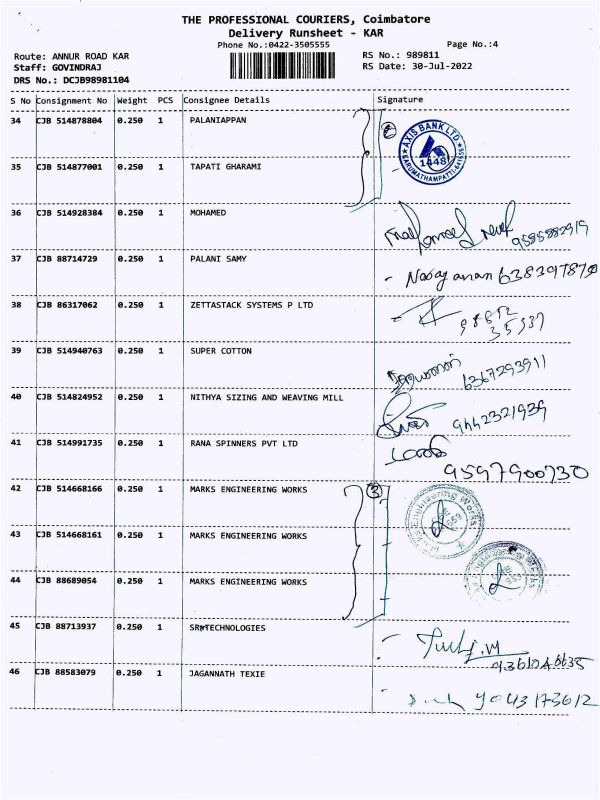 THE PROFESSIONAL COURIERS, Coimbatore
Delivery Runsheet - KAR
Phone No.:0422-3505555
Page No.:4
Route: ANNUR ROAD KAR
RS No.: 989811
Staff: GOVINDRAJ
RS Date: 30-Jul-2022
DRS No.: DCJB98981104
S No Consignment No Weight PCS Consignee Details Signature
34 CJB 514878804 0.250 1 PALANIAPPAN
AXIS BANK LTD
1448
35 CJB 514877001 0.250 1 TAPATI GHARAMI
36 CJB 514928384 0.250 1 MOHAMED
9585882919
37 CJB 88714729 0.250 1 PALANI SAMY
Narayanan
38 CJB 86317062 0.250 1 ZETTASTACK SYSTEMS P LTD
39 CJB 514940763 0.250 1 SUPER COTTON
6367293911
40 CJB 514824952 0.250 1 NITHYA SIZING AND WEAVING MILL
9442321939
41 CJB 514991735 0.250 1 RANA SPINNERS PVT LTD
9597900730
42 CJB 514668166 0.250 1 MARKS ENGINEERING WORKS
3
43 CJB 514668161 0.250 1 MARKS ENGINEERING WORKS
44 CJB 88689054 0.250 1 MARKS ENGINEERING WORKS
45 CJB 88713937 0.250 1 SRMTECHNOLOGIES
46 CJB 88583079 0.250 1 JAGANNATH TEXIE